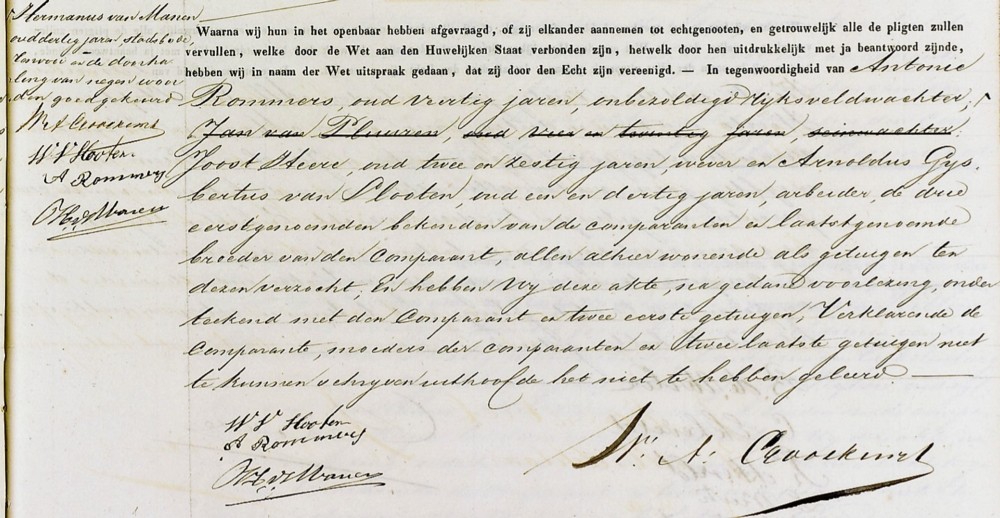 Hermanus van Manen
oud dertig jaren stadsbode,
en de doorha
ling van negen woor
den goedgekeurd
W V Hooten
A Rommers
H v Manen
Waarna wij hun in het openbaar hebben afgevraagd, of zij elkander aannemen tot echtgenooten, en getrouwelijk alle de pligten zullen
vervullen, welke door de Wet aan den Huwelijken Staat verbonden zijn, hetwelk door hen uitdrukkelijk met ja beantwoord zijnde,
hebben wij in naam der Wet uitspraak gedaan, dat zij door den Echt zijn vereenigd. — In tegenwoordigheid van Antonie
Rommers, oud veertig jaren, onbezoldigd rijksveldwachter,
Jan van Pluuren, oud vier en twintig jaren seinwachter
Joost Heere, oud twee en zestig jaren, wever en Arnoldus Gys
bertus van Slooten, oud een en dertig jaren, arbeider, de drie
eerstgenoemden bekenden van de comparanten en laatstgenoemde
broeder van den comparant, allen alhier wonende als getuigen ten
dezen verzocht, En hebben wy deze akte, na gedane voorlezing, onder
teekend met den Comparant en twee eerste getuigen, Verklarende de
Comparante, moeders der comparanten en twee laatste getuigen niet
te kunnen schryven uithoofde het niet te hebben geleerd. —
W V Hooten
A Rommers
H v Manen